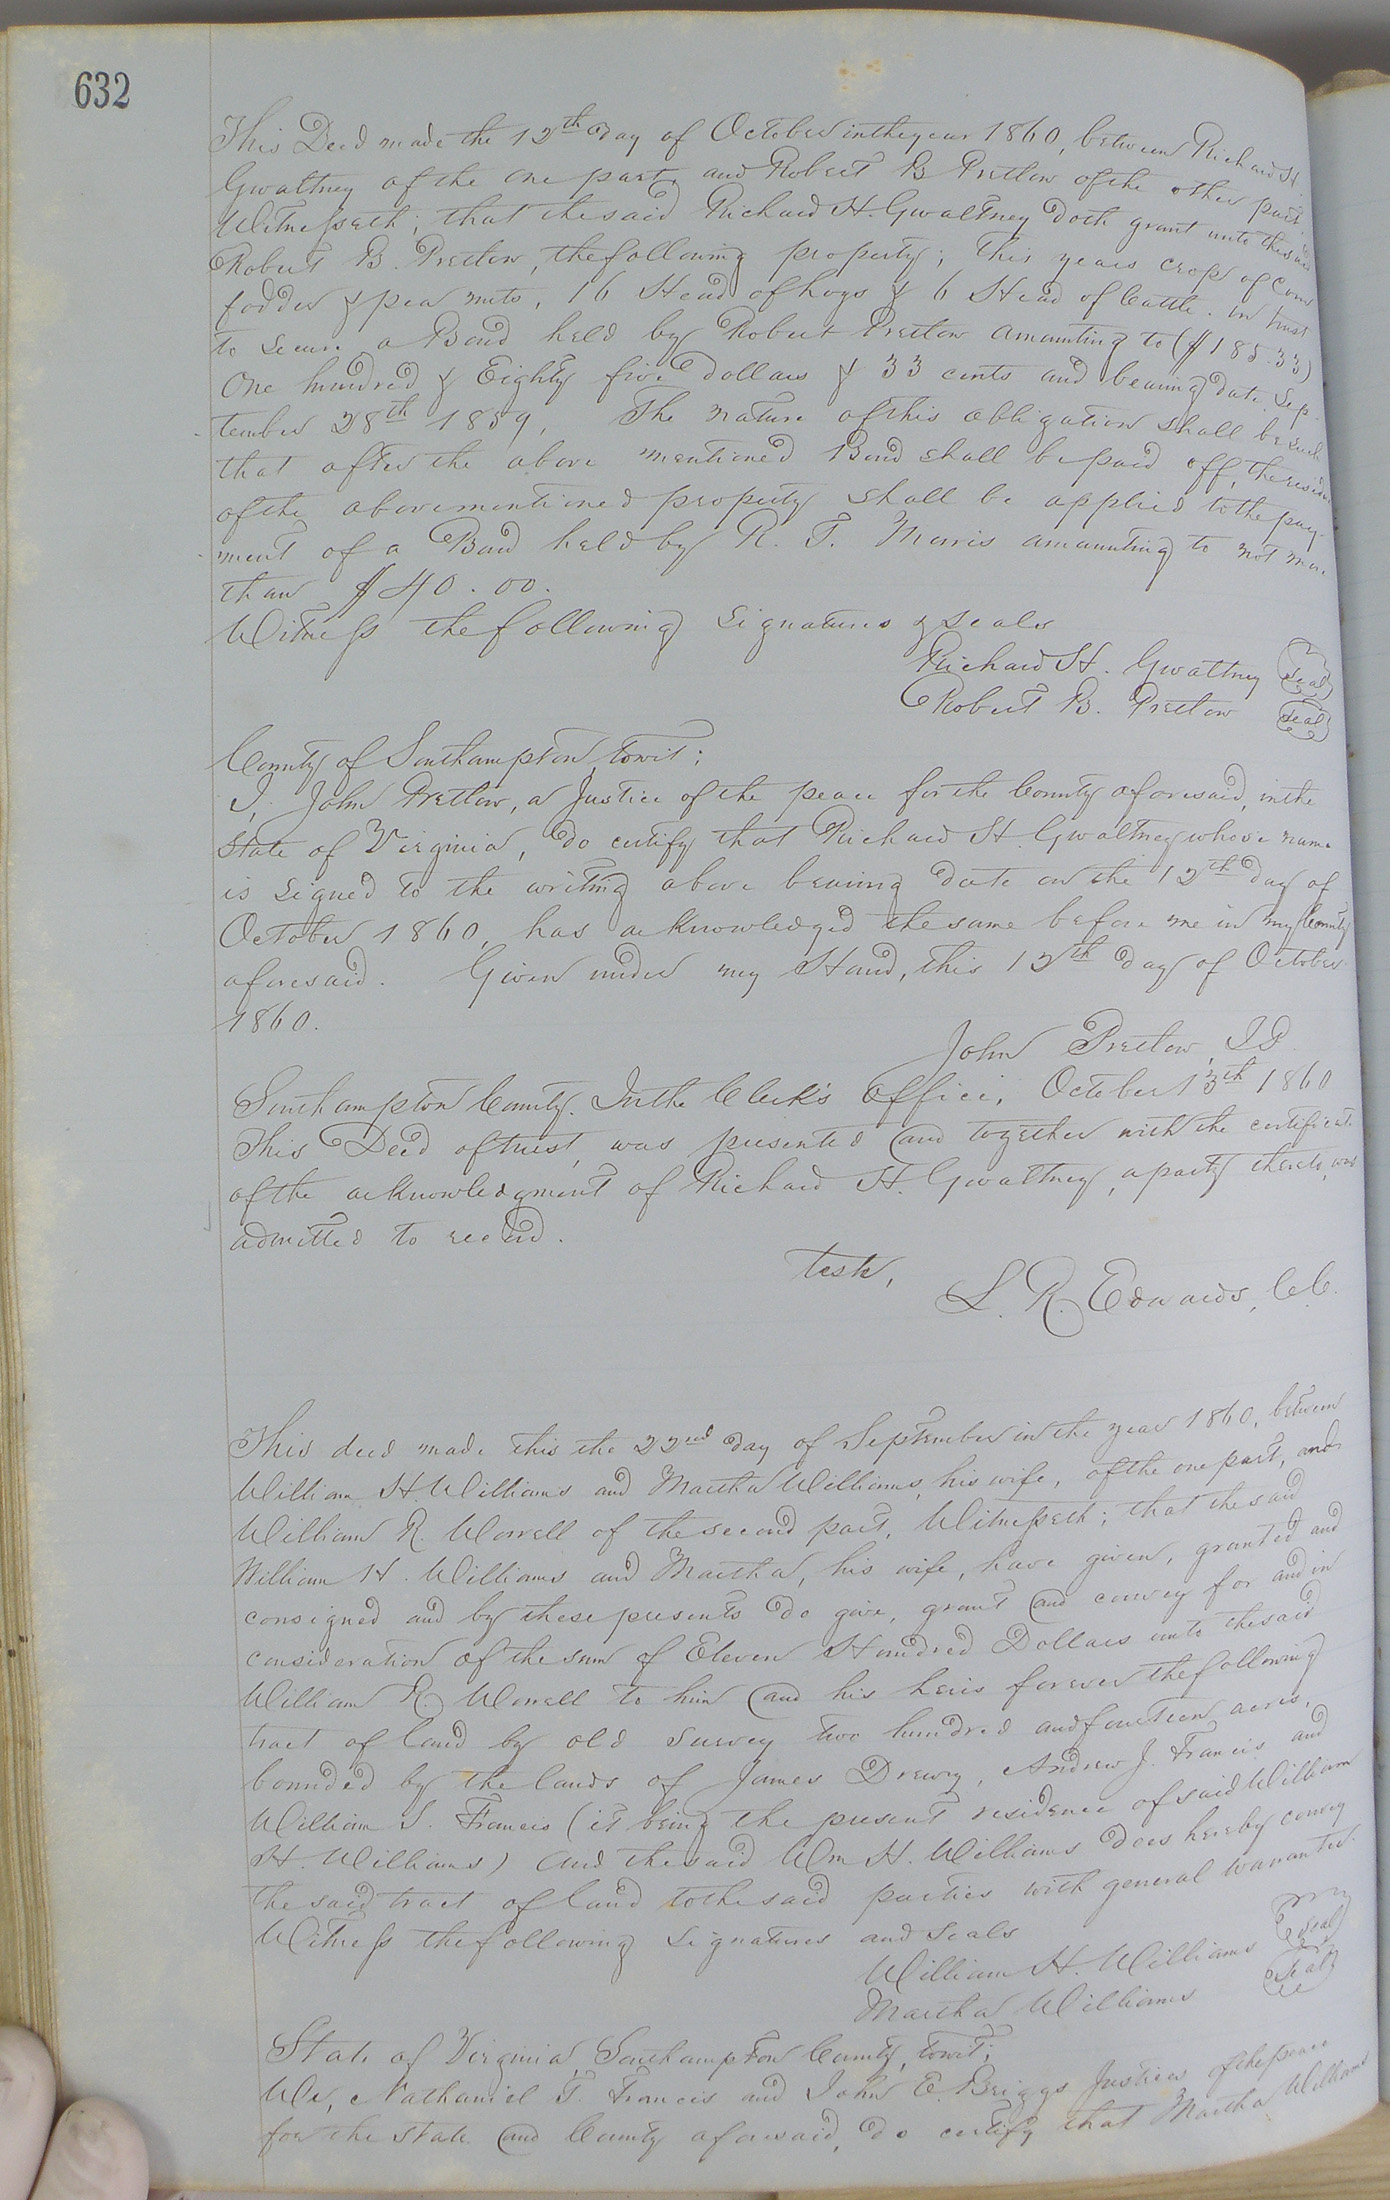 632
This Deed made the 12th day of October in the year 1860, between Richard H.
Gwaltney of the one part, and Robert B Pretlow of the other part.
Witnesseth; that the said Richard H. Gwaltney doth grant unto the said
Robert B. Pretlow, the following property; This years crop of corn
fodder & pea nuts, 16 Head of hogs & 6 Head of Cattle. In trust
to secure a Bond held by Robert Pretlow amounting to ($185.33)
One hundred & Eighty five dollars & 33 cents and bearing date Sep-
tember 28th 1859, The nature of this obligation shall be such
that after the above mentioned Bond shall be paid off, the residue
of the above mentioned property shall be applied to the pay-
ment of a Bond held by R. T. Morris amounting to not more
than $40.00.
Witness the following signatures & seals
Richard H. Gwaltney Seal
Robert B. Pretlow Seal
County of Southampton, towit;
I, John Pretlow, a Justice of the peace for the County aforesaid, in the
State of Virginia, do certify that Richard H. Gwaltney whose name
is signed to the writing above bearing date on the 12th day of
October 1860, has acknowledged the same before me in my County
aforesaid. Given under my Hand, this 12th day of October
1860.
John Pretlow, J P.
Southampton County. In the Clerk's Office, October 13th 1860
This Deed of trust, was presented and together with the certificate
of the acknowledgment of Richard H. Gwaltney, a party thereto, was
admitted to record.
Teste,
L. R. Edwards, C.C.
This deed made this the 22nd day of September in the year 1860, between
William H. Williams and Martha Williams, his wife, of the one part, and
William R. Worrell of the second part, Witnesseth; that the said
William H. Williams and Martha, his wife, have given, granted and
consigned and by these presents do give, grant and convey for and in
consideration of the sum of Eleven Hundred Dollars unto the said
William R Worrell to him and his heirs forever the following
tract of land by old survey two hundred and fourteen acres,
bounded by the lands of James Drewry, Andrew J. Francis and
William S. Francis (it being the present residence of said William
H. Williams) and the said Wm H. Williams does hereby convey
the said tract of land to the said parties with general warrantee.
Witness the following signatures and seals
William H. Williams Seal
Martha Williams Seal
State of Virginia, Southampton County, towit;
We, Nathaniel T. Francis and John E. Briggs Justices of the peace
for the State and County aforesaid, do certify that Martha Williams